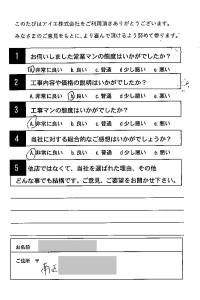 このたびはアイエ株式会社をご利用頂きありがとうございます。
みなさまのご意見をもとに、より喜んで頂けるよう努めて参ります。
1 お伺いしました営業マンの態度はいかがでしたか?
a.非常に良い b.良い c.普通 d.少し悪い e.悪い
2 工事内容や価格の説明はいかがでしたか?
a.非常に良い b.良い c.普通 d.少し悪い e.悪い
3 工事マンの態度はいかがでしたか?
a.非常に良い b.良い c.普通 d.少し悪い e.悪い
4 当社に対する総合的なご感想はいかがでしょうか?
a.非常に良い b.良い c.普通 d.少し悪い e.悪い
5 他店ではなくて、当社を選ばれた理由、その他
どんな事でも結構です。ご意見、ご要望をお聞かせ下さい。
お名前
ご住所 〒